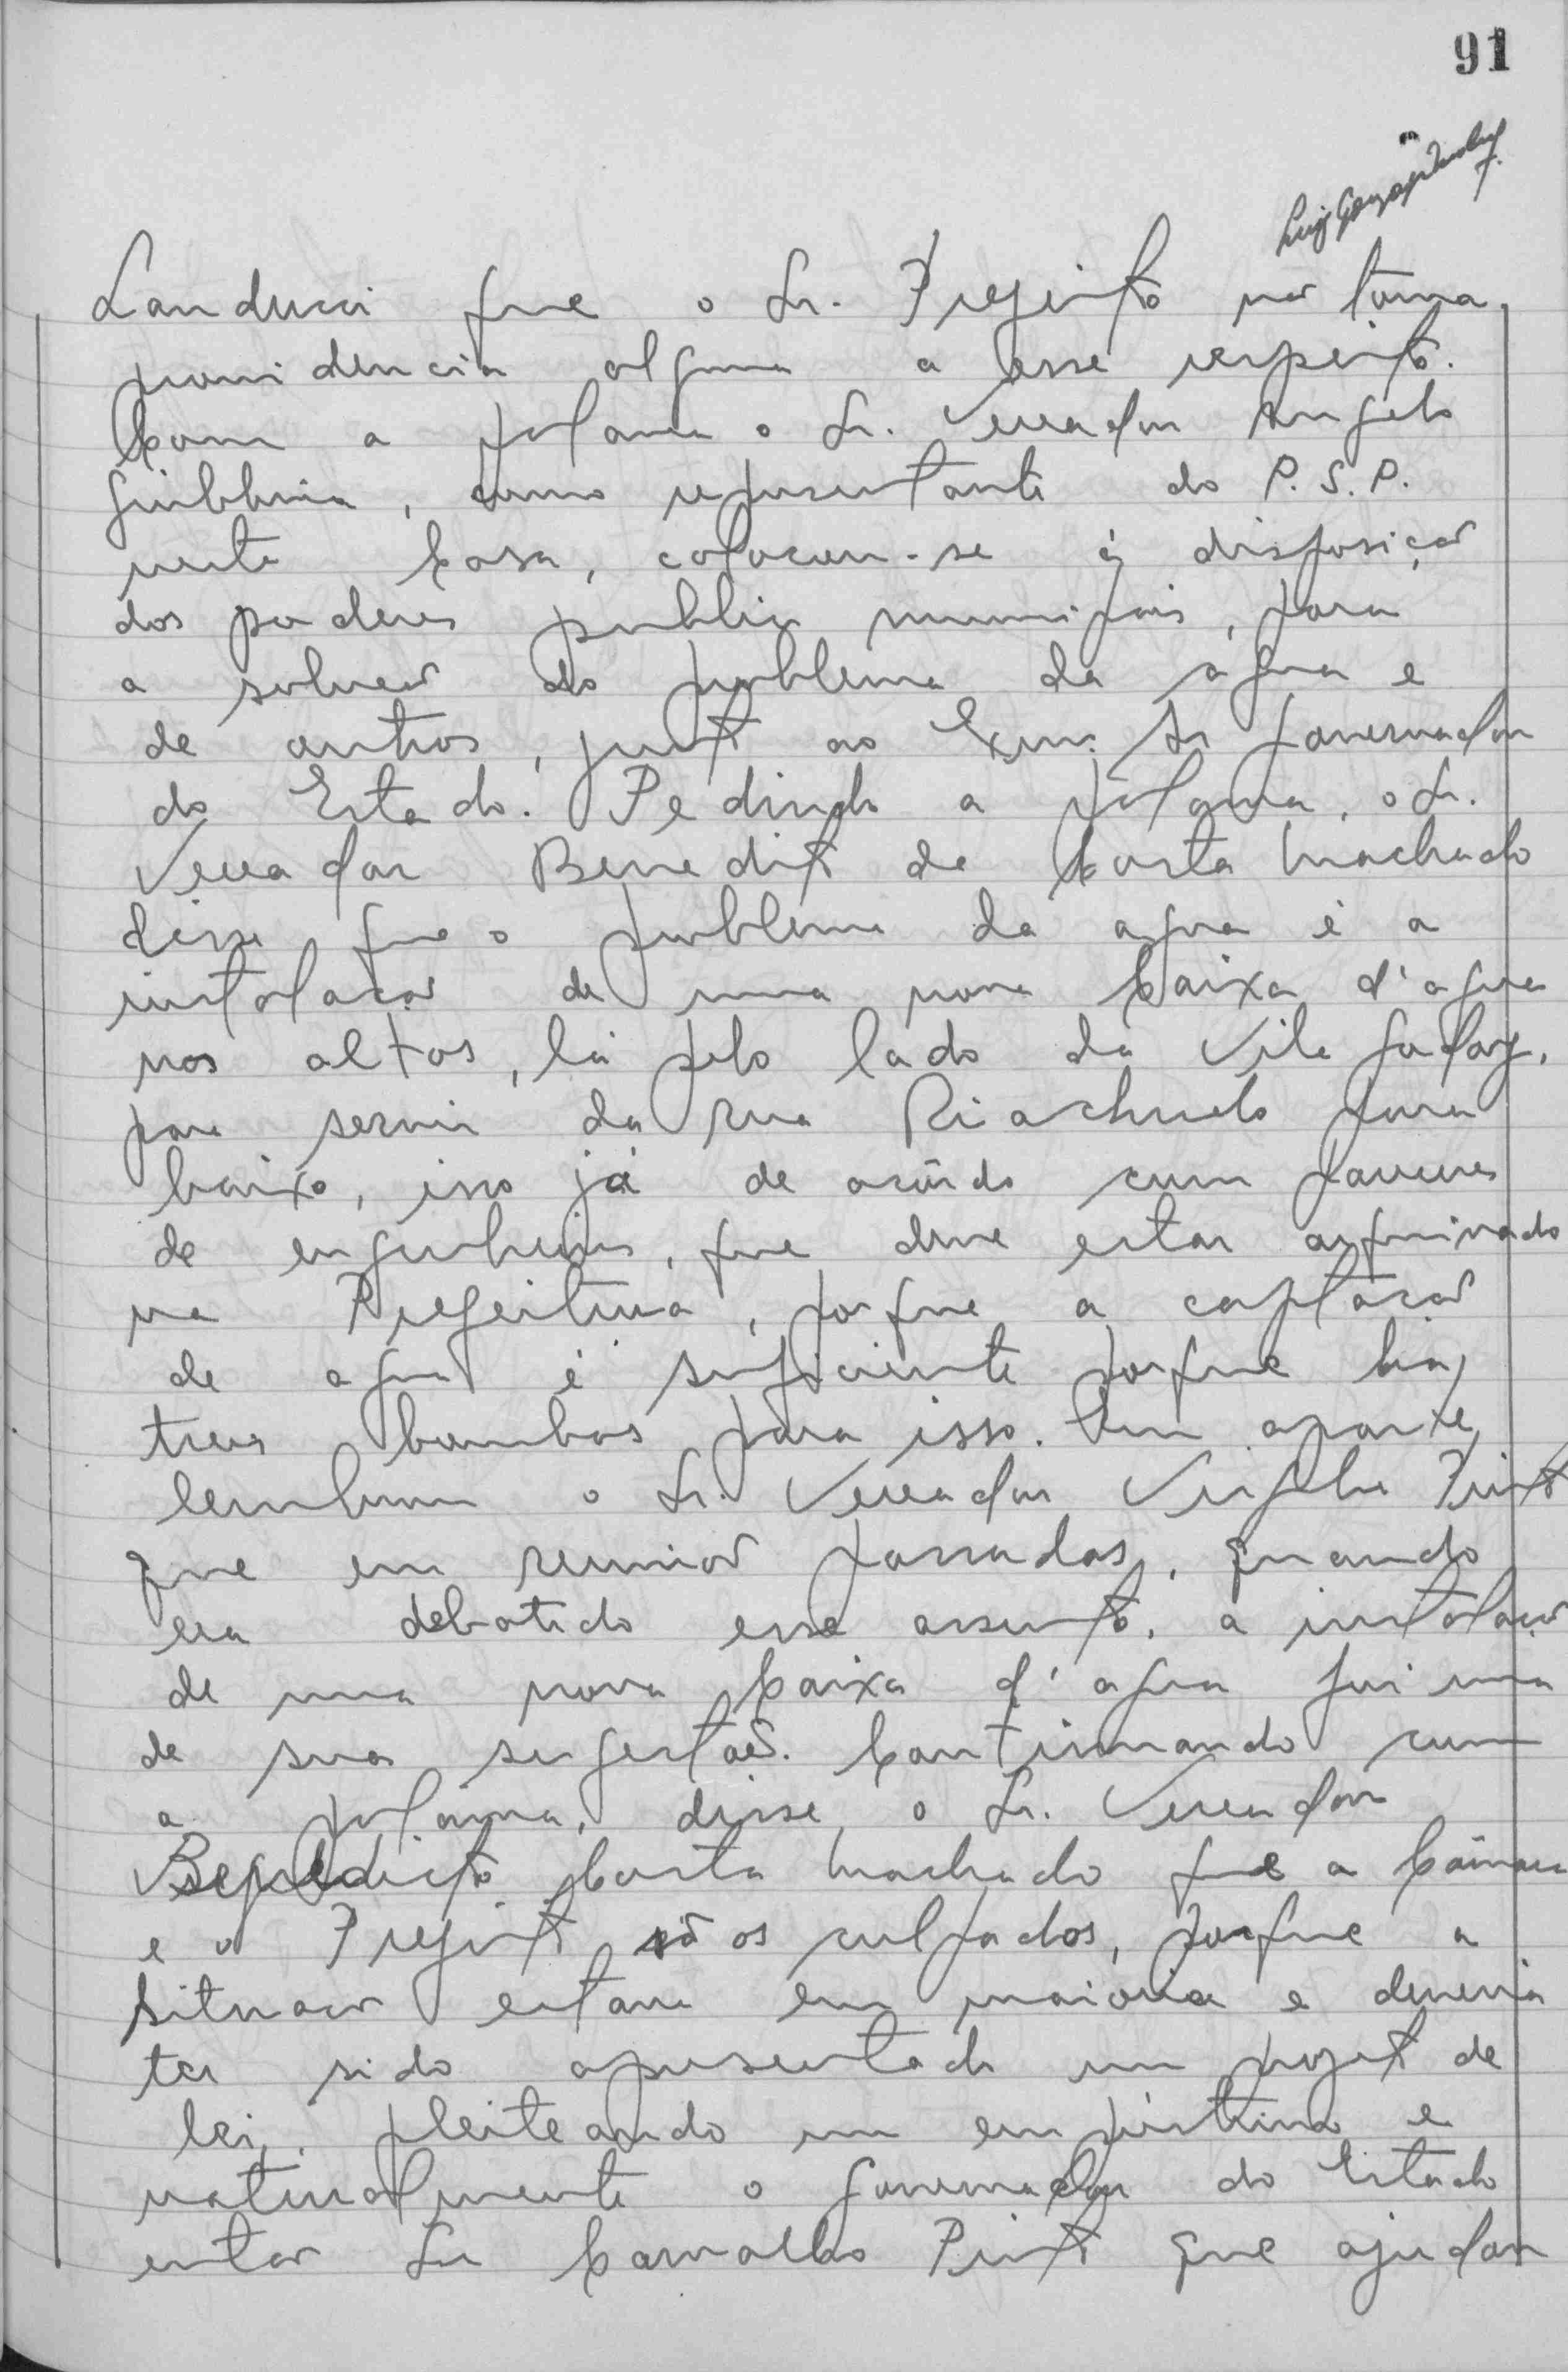 91
Landucci que o Sr. Prefeito não toma
providencia alguma a esse respeito.
Com a palavra o Sr. Vereador Angelo
como representante do P.S.P.
nesta Casa, colocou-se á disposição
dos poderes publico municipais, para
a solução do problema da agua e
de outros, junto ao Exmo. Sr Governador
do Estado. Pedindo a palavra, o Sr.
Vereador Benedito da Costa Machado
disse que o problema da agua é a
instalação de uma nova Caixa d'agua
nos altos, lá pelo lado da Vila
para servir da rua Riachuelo para
baixo, isso já de acôrdo com parecer
de engenheiros, que deve estar arquivado
na Prefeitura, porque a captação
de agua é suficiente porque há
tres bombas para isso. Em aparte
lembrou o Sr. Vereador Virgilio Pinto
que em reunião passadas, quando
era debatido esse assunto, a instalação
de uma nova Caixa d'agua foi uma
de suas sugestões. Continuando com
a palavra, disse o Sr. Vereador
Benedicto Costa Machado que a Câmara
e o Prefeito são os culpados, porque a
situação estava em maioria e deveria
ter sido apresentado um projeto de
lei, pleiteando um empréstimo e
naturalmente o Governador do Estado
então Sr Carvalho Pinto que ajudou